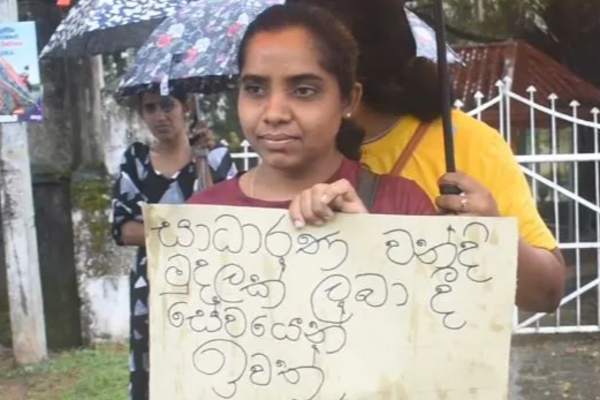 සාධාරණ වන්දි
මුදලක් ලබා ද
සේවයෙන්
ඉවත්